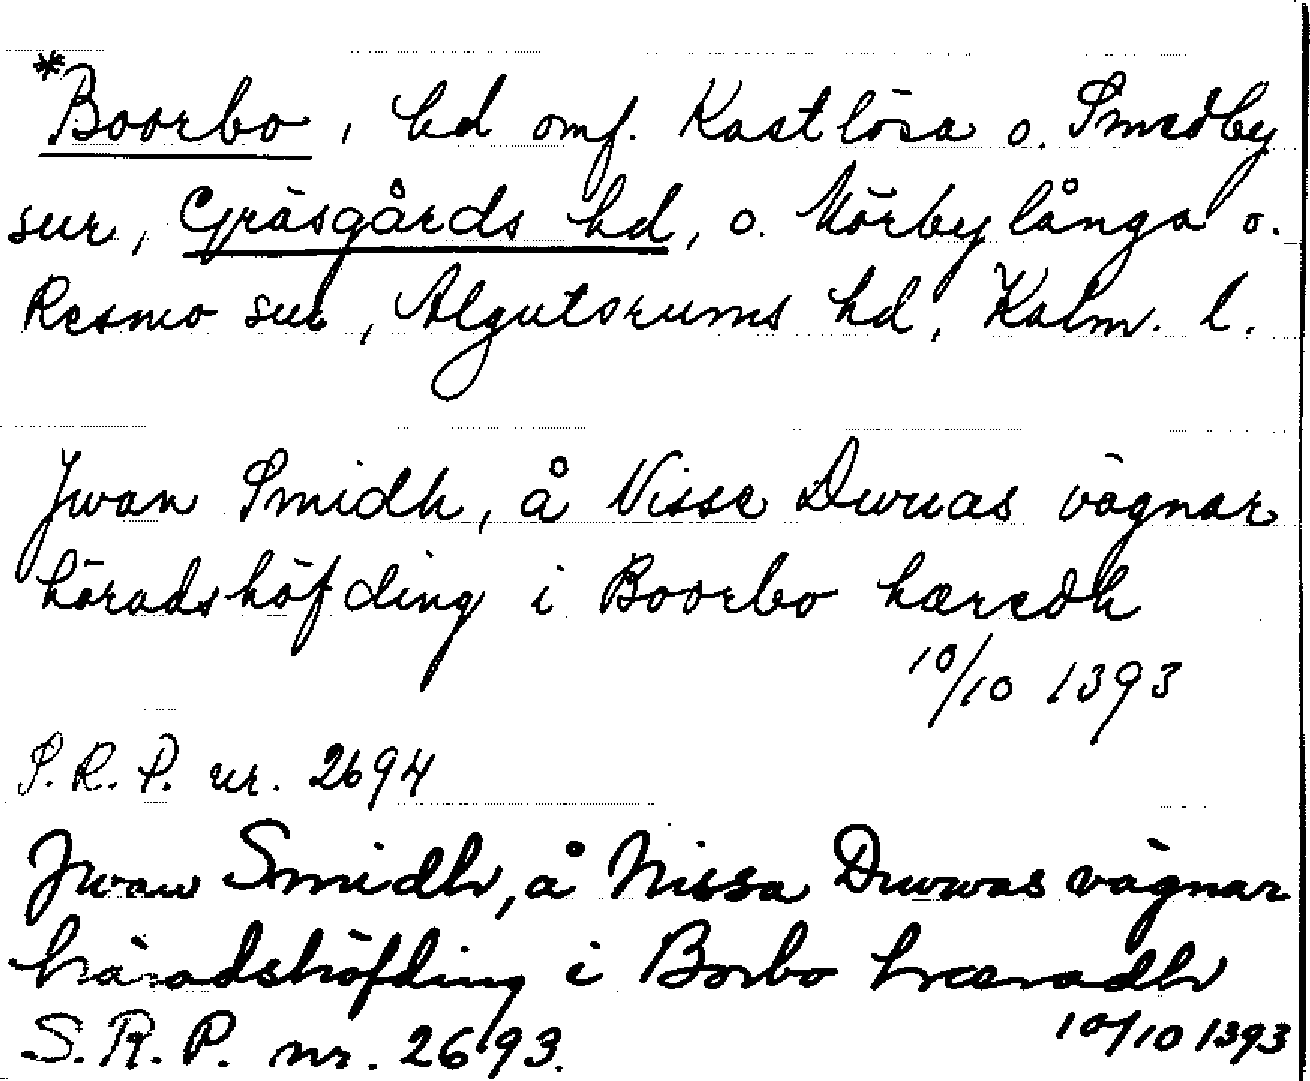 *Boorbo, hd omf. Kastlösa o. Smedby
snr, Gräsgårds hd, o. Mörbylånga o.
Resmo snr, Algutsrums hd, Kalm. l.
Jwan Smidh, å Nisse Duwas vägnar
häradshöfding i Boorbo hæredh
10/10 1393
S.R.P. nr. 2694
Jwan Smidh, å Nissa Duwas vägnar
häradshöfding i Borbo hæradh
S.R.P. nr. 2693. 10/10 1393